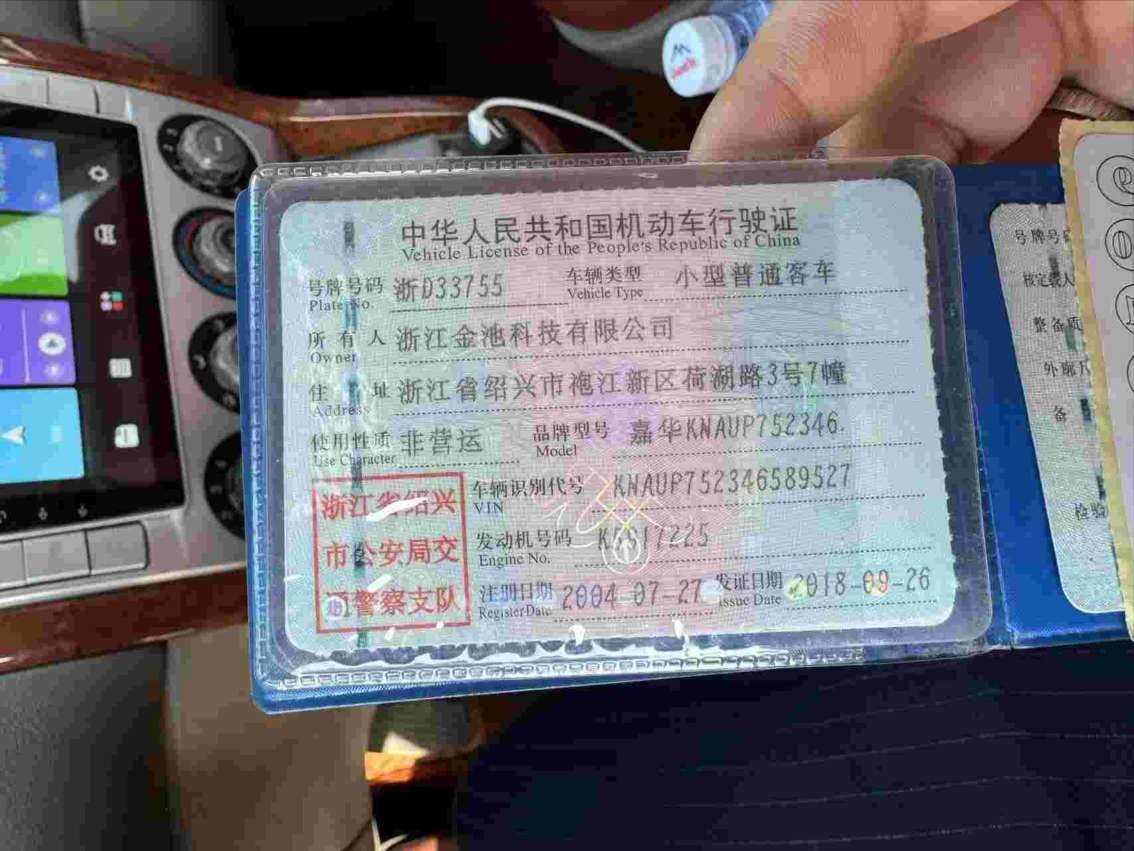 中华人民共和国机动车行驶证
Vehicle License of the People's Republic of China
号牌号码 浙D33755 车辆类型 小型普通客车
Plate No. Vehicle Type
所有人 浙江金池科技有限公司
Owner
住址 浙江省绍兴市袍江新区荷湖路3号7幢
Address
使用性质 非营运 品牌型号 嘉华KNAUP752346.
Use Character Model
车辆识别代号 KNAUP752346589527
VIN
发动机号码
Engine No.
注册日期 2004-07-27 发证日期 2018-09-26
Register Date Issue Date
浙江省绍兴
市公安局交
通警察支队
号牌号
核定载人
整备质
外廓
备
检验